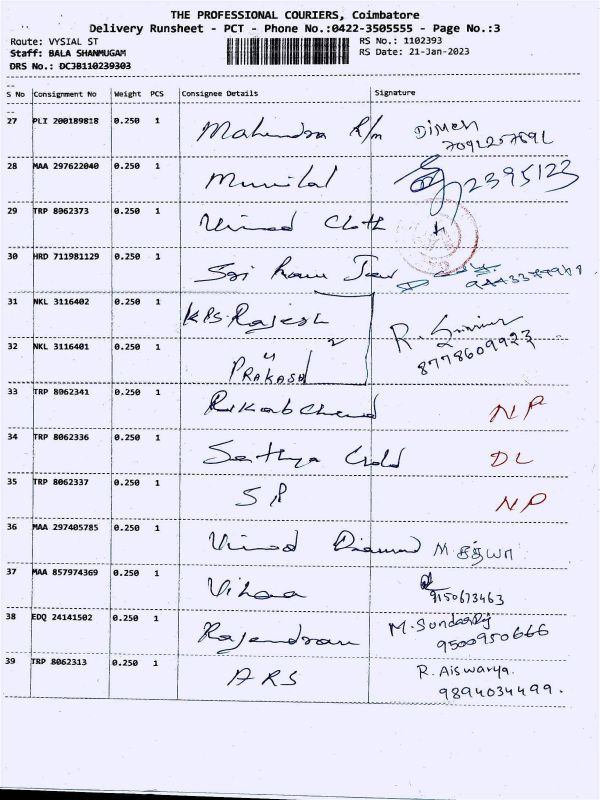 THE PROFESSIONAL COURIERS, Coimbatore
Delivery Runsheet - PCT - Phone No.:0422-3505555 - Page No.:3
Route: VYSIAL ST
RS No.: 1102393
Staff: BALA SHANMUGAM
RS Date: 21-Jan-2023
DRS No.: DCJB110239303
S No Consignment No Weight PCS Consignee Details Signature
27 PLI 200189818 0.250 1 Mahendra R/m Dinesh
28 MAA 297622040 0.250 1 Munilal
29 TRP 8062373 0.250 1 Vinod Cloth
30 HRD 711981129 0.250 1 Sri Ram
31 NKL 3116402 0.250 1 KPS. Rajesh
32 NKL 3116401 0.250 1 " PRAKASH 2 R.
8778609923
33 TRP 8062341 0.250 1 Rikab Chand NP
34 TRP 8062336 0.250 1 Sathya Gold DL
35 TRP 8062337 0.250 1 SP NP
36 MAA 297405785 0.250 1 Vinod Diamond M.
37 MAA 857974369 0.250 1
9150673463
38 EDQ 24141502 0.250 1 Rajendran
9500950666
39 TRP 8062313 0.250 1 ARS R. Aiswarya.
9894034499.